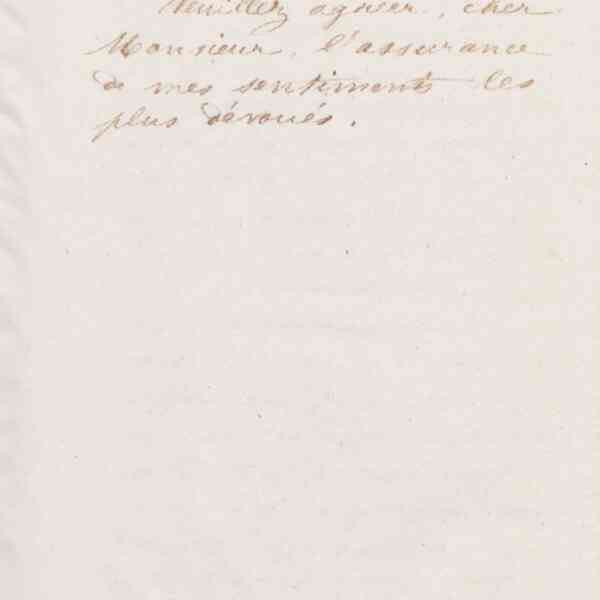 Veuillez agréer, cher
Monsieur, l'assurance
de mes sentiments les
plus dévoués.